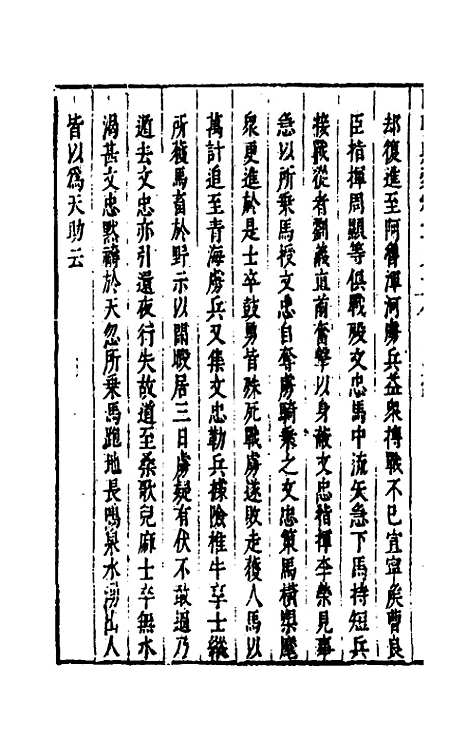 却復進至阿魯渾河虜兵益衆摶戰不已宜寧侯曹良
臣指揮周顯等俱戰歿文忠馬中流矢急下馬持短兵
接戰從者劉義直前奮擊以身蔽文忠指揮李榮見事
急以所乗馬授文忠自奪虜騎乗之文忠策馬橫槊麾
衆更進於是士卒鼓勇皆殊死戰虜遂敗走獲人馬以
萬計追至青海虜兵又集文忠勒兵據險椎牛享士縱
所獲馬畜於野示以閒暇居三日虜疑有伏不敢逼乃
遁去文忠亦引還夜行失故道至桑歌兒麻士卒無水
渴甚文忠默禱於天忽所乗馬跑地長鳴泉水湧出人
皆以爲天助云